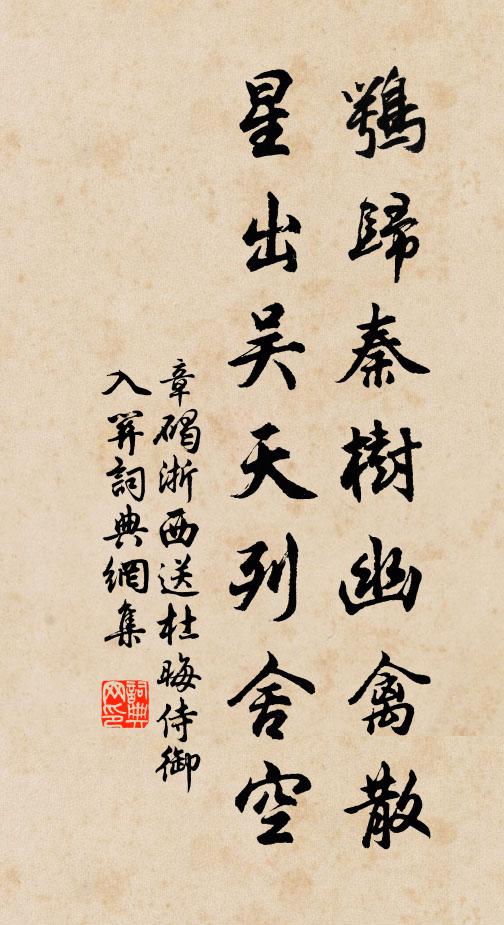 鶚歸秦樹幽禽散
星出吴天列舍空
章碣浙西送杜晦侍御
入關詞典網集
詞典網印